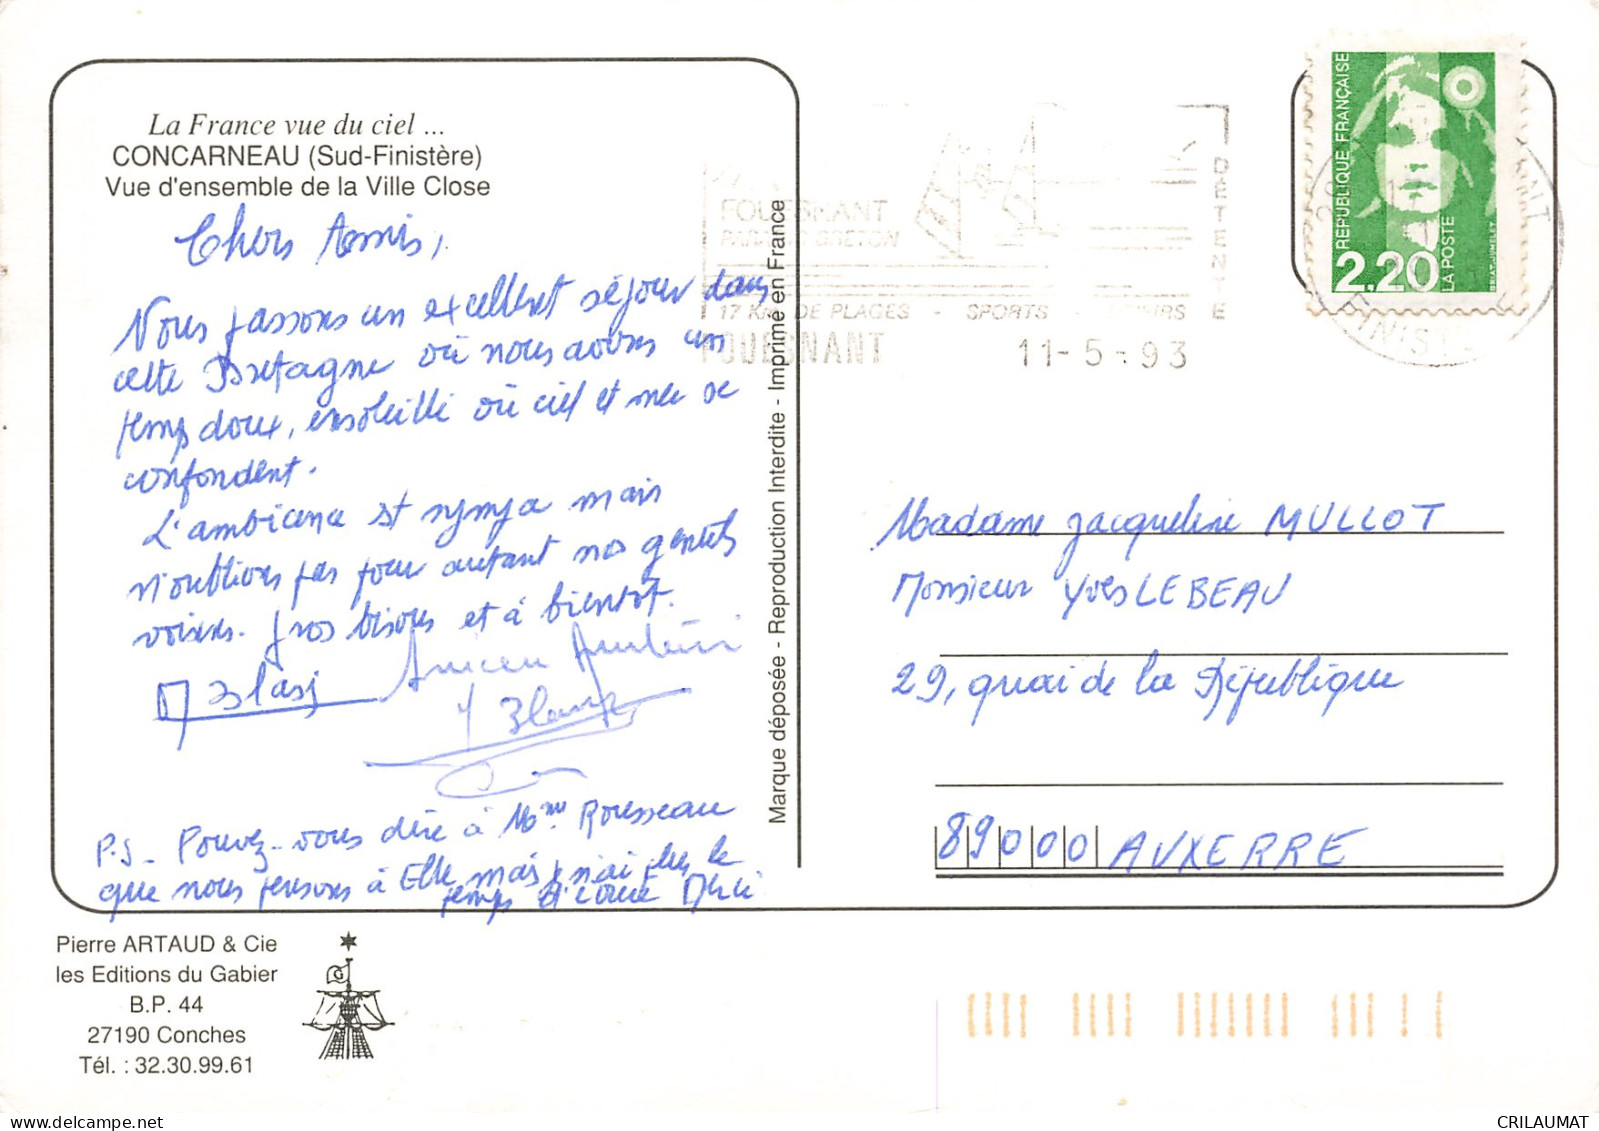 La France vue du ciel ...
CONCARNEAU (Sud-Finistère)
Vue d'ensemble de la Ville Close
Chers Amis,
Nous passons un excellent séjour dans
cette Bretagne où nous avons un
temps doux, ensoleillé où ciel et mer se
confondent.
L'ambience st sympa mais
n'oublions pas pour autant nos gentils
voisins. Gros bisous et à bientôt.
P.S- Pouvez-vous dire à Mme Rousseau
que nous pensons à Elle mais n'ai pas le
temps d'écrire Merci
Marque déposée - Reproduction Interdite - Imprimé en France
FOUESNANT
PARADIS BRETON
DETENTE
17 KM DE PLAGES - SPORTS - LOISIRS
FOUESNANT
11-5-93
REPUBLIQUE FRANÇAISE
2,20
LA POSTE
BRIAT-JUMELET
FINISTERE
Madame Jacqueline MULLOT
Monsieur Yves LEBEAU
29, quai de la République
89000 AUXERRE
Pierre ARTAUD & Cie
les Editions du Gabier
B.P. 44
27190 Conches
Tél. : 32.30.99.61
CRILAUMAT